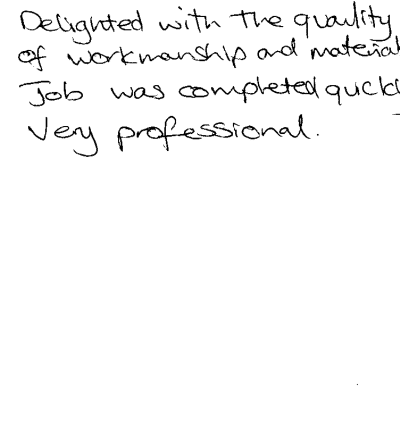 Delighted with the quality
of workmanship and material
Job was completed quick
Very professional.